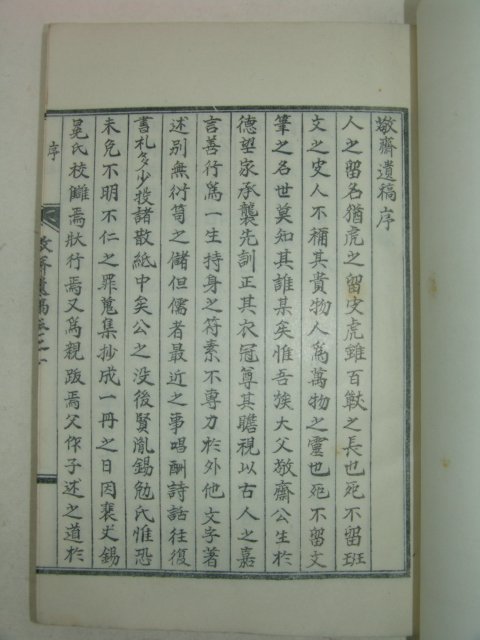 敬齋遺稿序
人之留名猶虎之留皮虎雖百獸之長也死不留班
文之皮人不稱其貴物人爲萬物之靈也死不留文
筆之名世莫知其誰某矣惟吾族大父敬齋公生於
德望家承襲先訓正其衣冠尊其瞻視以古人之嘉
言善行爲一生持身之符素不專力於外他文字著
述别無衍笥之儲但儒者最近之事唱酬詩話往復
書札多少投諸散紙中矣公之没後賢胤錫勉氏惟恐
未免不明不仁之罪蒐集抄成一冊之日因裵丈錫
冕氏校讎焉狀行焉又爲親跋焉父作子述之道於
序
敬齋遺稿卷之